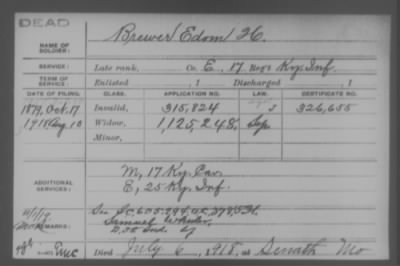 DEAD
NAME OF SOLDIER: Brewer Edom H.
SERVICE: Late rank, Co. E, 17 Reg't Ky. Inf.
TERM OF SERVICE: Enlisted , 1 Discharged , 1
DATE OF FILING. CLASS. APPLICATION NO. LAW. CERTIFICATE NO.
1879, Oct. 17 Invalid, 315,824 326,655
1918 Aug. 10 Widow, 1,125,248. Sep.
Minor,
ADDITIONAL SERVICES: M, 17 Ky. Cav.
E, 25 Ky. Inf.
REMARKS: Samuel Wheeler,
Died July 6, 1918, at Senath Mo